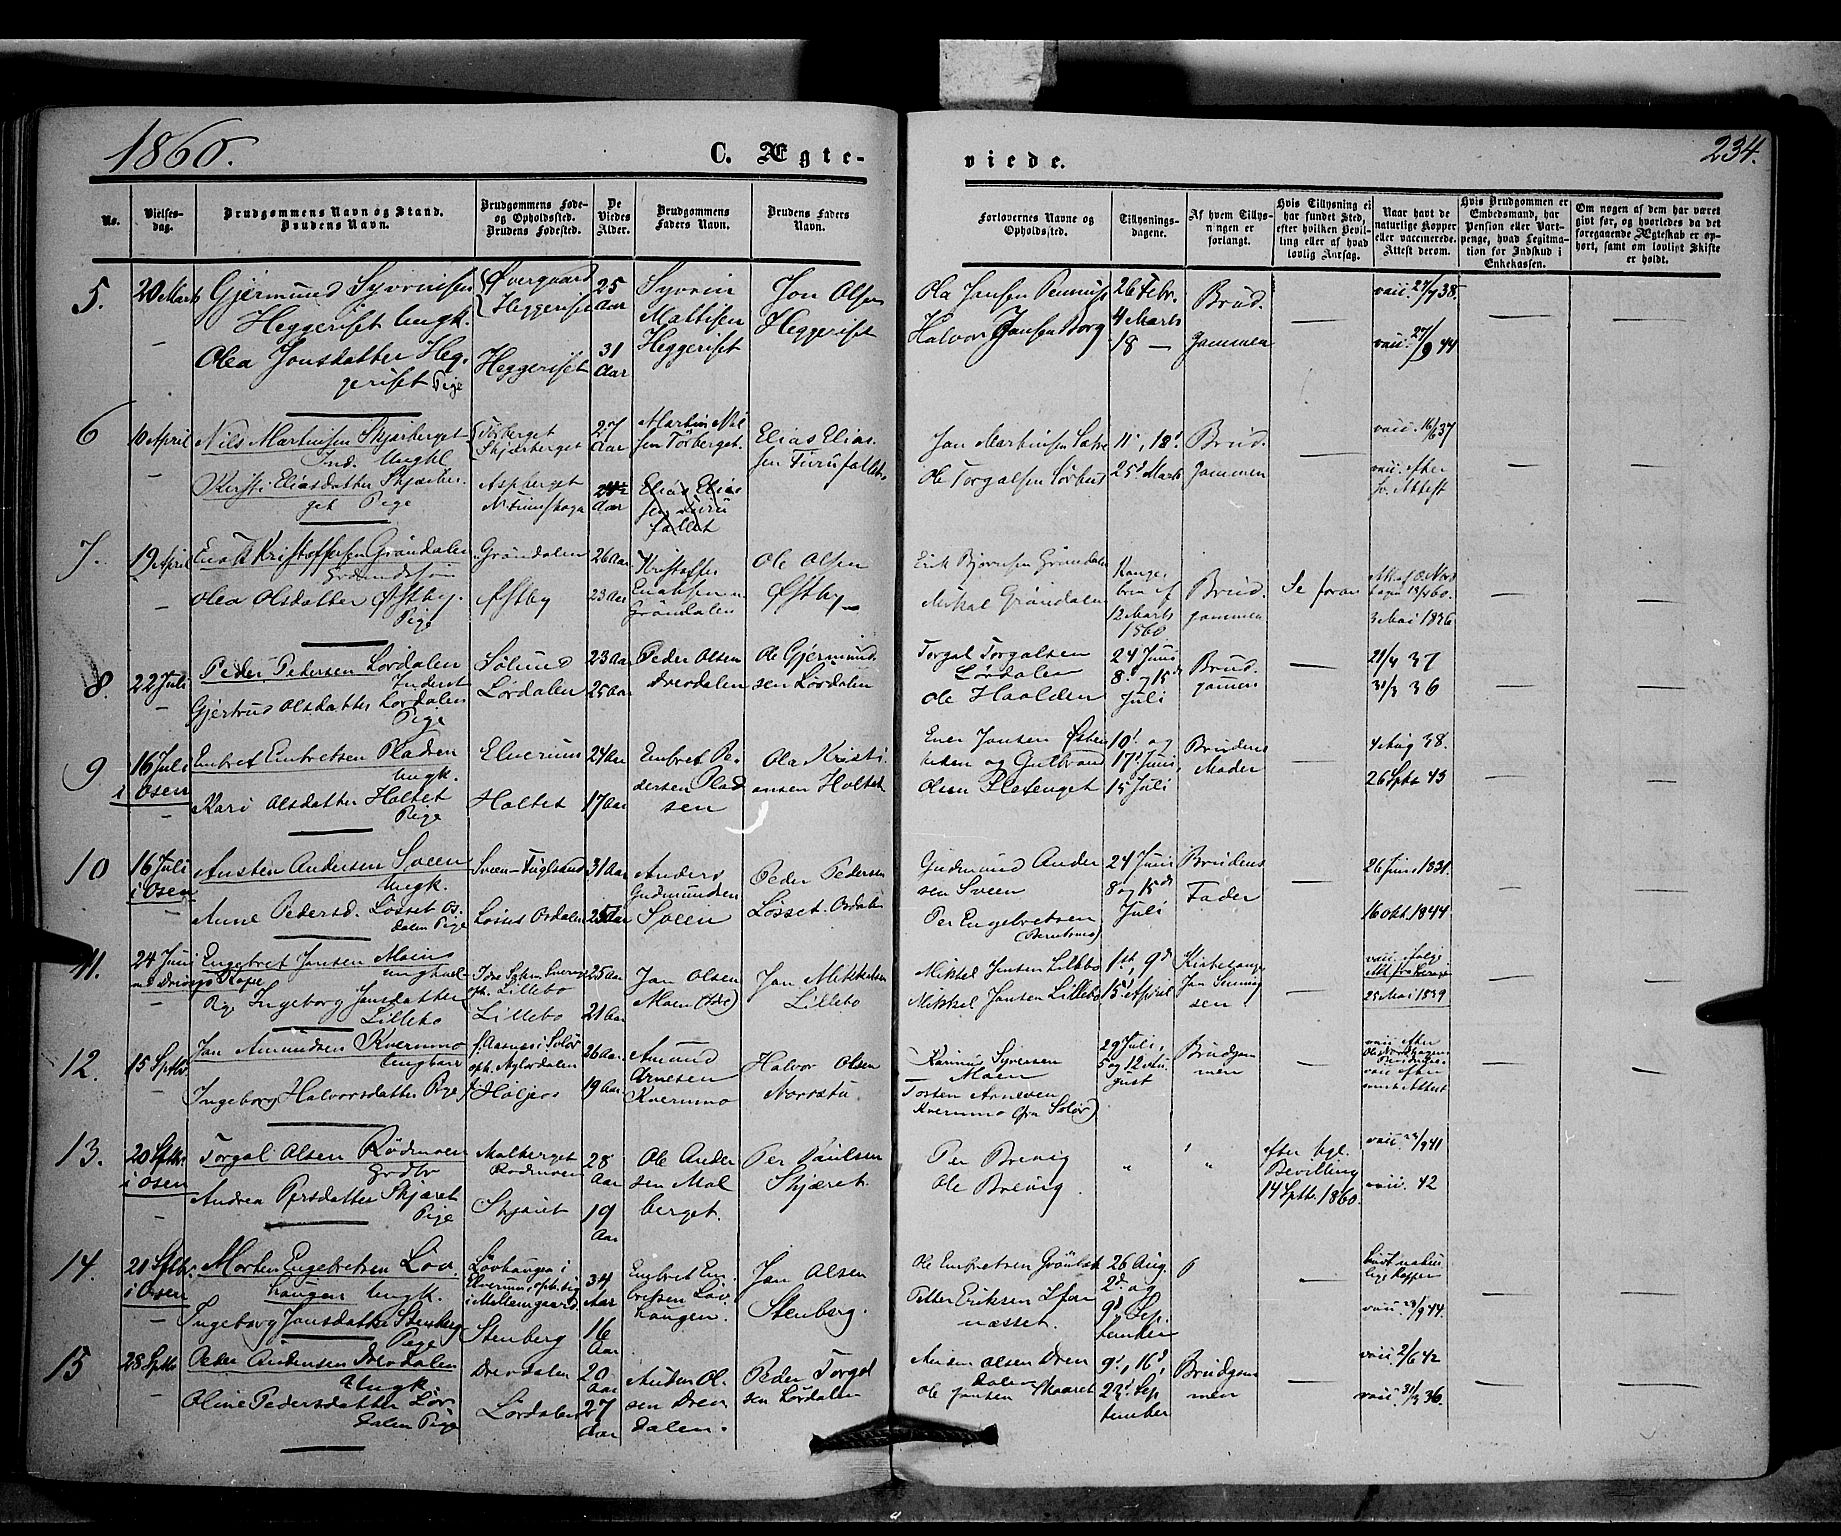 1860.
C. Ægte-
viede.
234.
No.
Vielses-
dag.
Brudgommens Navn og Stand.
Brudens Navn.
Brudgommens Føde-
og Opholdssted.
Brudens Fødested.
De
Viedes
Alder.
Brudgommens
Faders Navn.
Brudens Faders
Navn.
Forlovernes Navne og
Opholdssted.
Tillysnings-
dagene.
Af hvem Tillys-
ningen er
forlangt.
Hvis Tillysning ei
har fundet Sted,
efter hvilken Bevil-
ling eller af hvad
lovlig Aarsag.
Naar havt de
naturlige Kopper
eller vaccinerede.
Attest derom.
Hvis Brudgommen er
Embedsmand, har
Pension eller Vart-
penge, hvad Legitima-
tion for Indskud i
Enkekassen.
Om nogen af dem har været
givt før, og hvorledes da det
foregaaende Ægteskab er op-
hørt, samt om lovligt Skifte
er holdt.
5.
20 Marts
Gjermund Syvrinsen
Heggeriset Ungk.
Olea Jonsdatter Heg-
geriset Pige
Øvergaard
Heggeriset
Heggeriset
25
Aar
31
Aar
Syvrin
Mattisen
Heggeriset
Jon Olsen
Heggeriset
Ola Jansen
Halvor Jansen Borg
26 Febr.
4 Marts
18 —
Brud-
gommen
vacc. 27/7 38.
vacc. 27/9 44
6
10 April
Nils Martinsen Skjærberget
Ind. Ungkl
Kersti Eliasdatter Skjærber-
get Pige
Törberget
Skjærberget
Aspberget
27
Aar
Aar
Martin Nil-
sen Törberget.
Elias Elias
sen Furu
fallet
Elias Elias-
sen Furufallet.
Jon Martinsen
Ole Torgalsen Sørhus
11', 18'
25' Marts
Brud-
gommen
vacc. 16/6 37
vacc. efter
Sv. Attest
7.
19 April
Enok Kristoffersen Gröndalen
Olea Olsdatter Østby.
Pige
Gröndalen
Østby
26 Aar
23 Aar
Kristoffer
Enoksen
Gröndalen
Ole Olsen
Østby
Erik Gröndalen
Mikal Gröndalen
Konge-
brev af
12 Marts
1860
Brud-
gommen
Se foran
3 Mai 1836
8.
22 Juli
Peder Pedersen Lørdalen
Inderst
Gjertrud Olsdatter Lørdalen
Pige
Sølend
Lørdalen
23 Aar
25 Aar
Peder Olsen
Drevdalen
Ole Gjermund-
sen Lørdalen
Torgal Torgalsen
Lørdalen
Ole Haalden
24 Juni
8. og 15de
Juli
Brud-
gommen
21/4 37
31/3 36
9
16 Juli
i Osen
Embret Embretsen Pladsen
Ungk.
Kari Olsdatter Holtet
Pige
Elverum
Holtet
24 Aar
17 Aar
Embret Pe-
dersen Plad
sen
Ola Kristi-
ansen Holtet
Ener Jansen
og Gulbrand
Olsen Pladsenget
10' og
17' Juni,
15 Juli
Brudens
Moder
4 Aug 38.
26 Septr 43
10
16 Juli
i Osen
Austen Andersen Sveen
Ungk.
Anne Pedersd. Løsset Os-
dalen Pige
Sveen-Fuglsand
Løsset Osdalen
31 Aar
25 Aar
Anders
Gudmundsen
Sveen
Peder Pedersen
Løsset Osdalen
Gudmund Ander
sen Sveen
Per Engebretsen
24 Juni
8 og 15de
Juli
Brudens
Fader
26 Juni 1831.
16 Okt 1844
11.
24 Juni
Engebret Jansen
ungkarl
Pig. Ingeborg Jansdatter
Lillebo
Idre Sokn Sverge
oph. Lillebo
Lillebo
25 Aar
21 Aar
Jan Olsen
Moen (Idre)
Jan Mikkelsen
Lillebo
Mikkel Jensen Lillebo
Mikkel Jansen Lillebo
1st, 9d
15' April
Kirkesanger
Jan
sen
vacc. ifølge
25 Mai 1839
12.
15 Septbr
Jan Amundsen Kvernmo
Ungkarl
Ingeborg Halvorsdatter Pige
f. Aasnes i Solør
oph. Nylørdalen
Höljes
26 Aar
19 Aar
Amund
Arnesen
Kvernmo
Halvor Olsen
Norsætu
Syversen
Moen
Torsten Arnesen
Kvernmo (fra Solør)
29 Juli,
5 og 12 Au-
gust
Brudgom-
men
vacc. efter
vacc. efter
svensk Attest
13.
20 Septbr
i Osen
Torgal Olsen Rödmoen
Andrea Persdatter Skjæret
Pige
Malberget
Rødmoen
Skjæret
28
Aar
19
Aar
Ole Ander
sen Mal
berget.
Per Paulsen
Skjæret.
Per Brevig
Ole Brevig.
"
"
efter kgl.
Bevilling
14 Septbr 1860.
vacc. 23/9 41
vacc. 42
14.
21 Septbr.
i Osen
Morten Engebretsen Løv-
haugen Ungk.
Ingeborg Jansdatter Stenberg
Pige
Løvhaugen i
Elverum, oph. sig
i
Stenberg
34
Aar
16
Aar
Embret En-
bretsen Løv-
haugen.
Jan Olsen
Stenberg.
Ole Embretsen
Petter Eriksen
næsset.
26 Aug.
2d og
9d Sep-
tember
havt natur-
lige Kopper
vacc. 23/9 44
15
28 Septbr
Peder Andersen Drevdalen
Ungk
Oline Pedersdatter Lør-
dalen Pige
Drevdalen
Lørdalen
20
Aar
27
Aar
Anders Ol-
sen Drev
dalen.
Peder Torgal
sen Lørdalen
Olsen Drev
dalen
Ole Jansen
9', 16',
23' Sep
tember
Brudgom-
men
vacc. 2/6 42
vacc. 31/3 36.